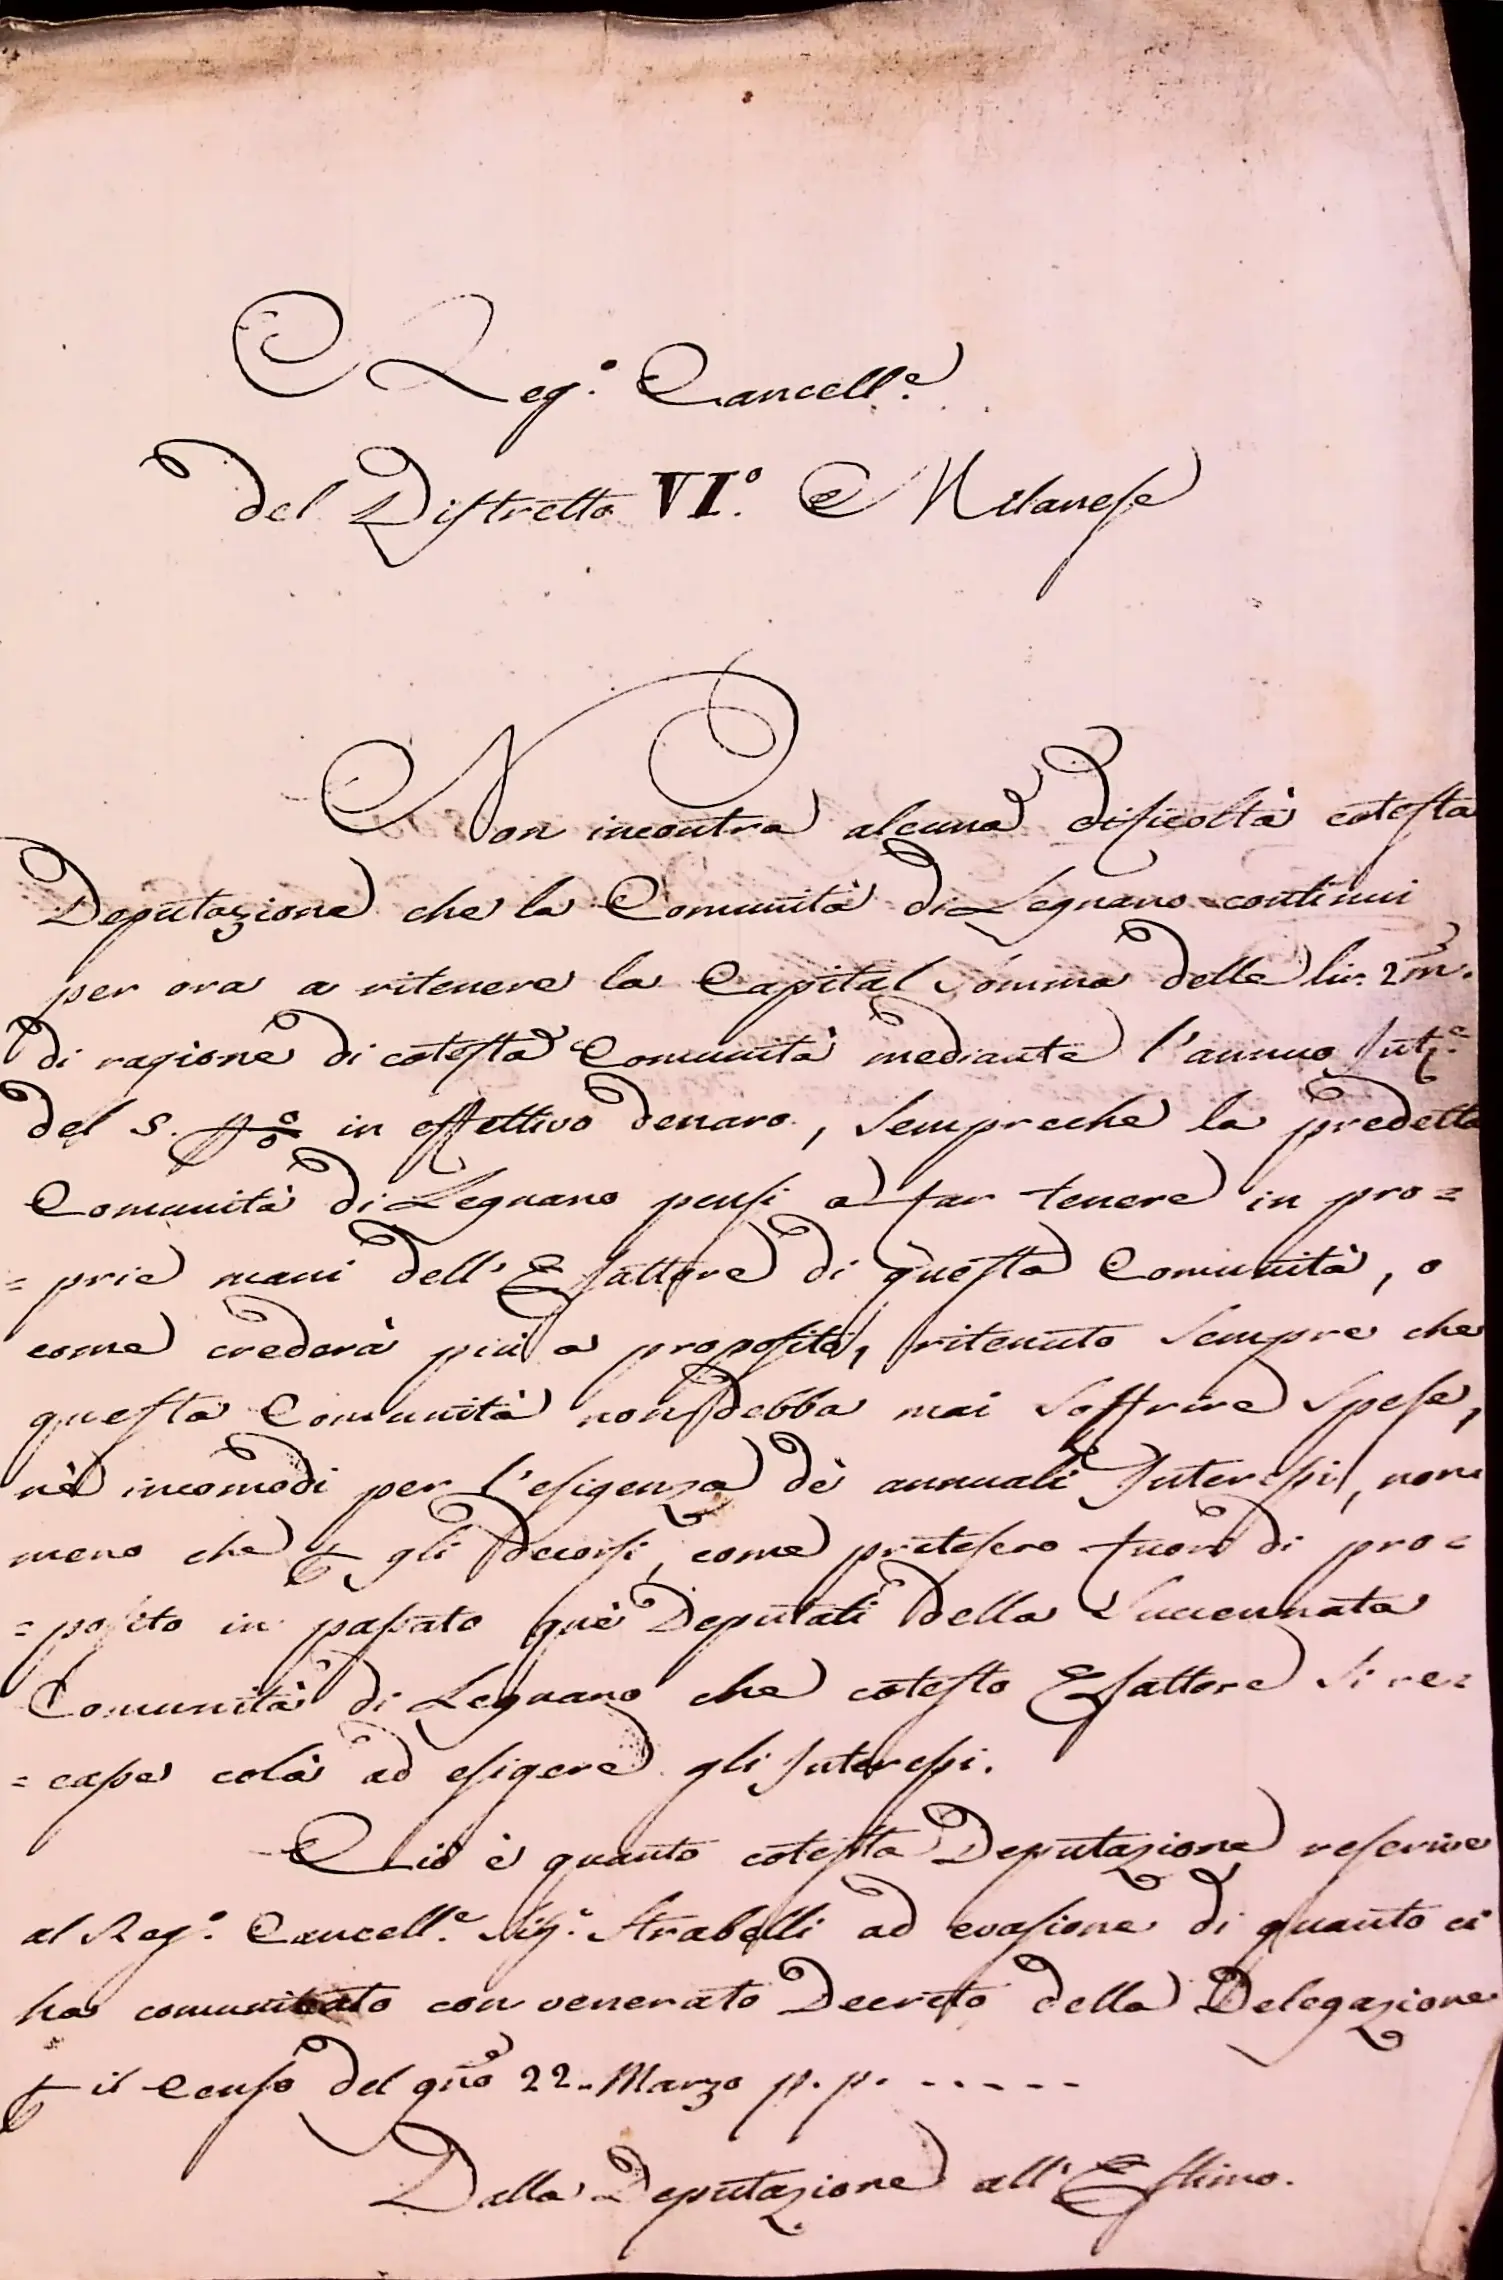 Reg.º Cancell.e
del Distretto VI.º Milanese
Non incontra alcuna dificoltà cotesta
Deputazione che la Comunità di Legnano continui
per ora a ritenere la Capital Somma delle lir. 2m.
di ragione di cotesta Comunità mediante l'annuo Int.e
del 5. p% in effettivo denaro, sempreche la predetta
Comunità di Legnano pensi a far tenere in pro=
=prie mani dell'Esattore di questa Comunità, o
come crederà più a proposito, ritenuto sempre che
questa Comunità non debba mai soffrire spese,
nè incomodi per l'esigenza dè annuali Interessi, non
meno che gli decorsi, come pretesero fuori di pro=
=posito in passato què Deputati della Succennata
Comunità di Legnano che cotesto Esattore si re=
=casse colà ad esigere gli Interessi.
Ciò è quanto cotesta Deputazione rescrive
al Reg.º Cancell.e Sig.r Strabelli ad evasione di quanto ci
ha comunicato con venerato Decreto della Delegazione
il Censo del gno 22. Marzo p. p. - - - - -
Dalla Deputazione all'Estimo.